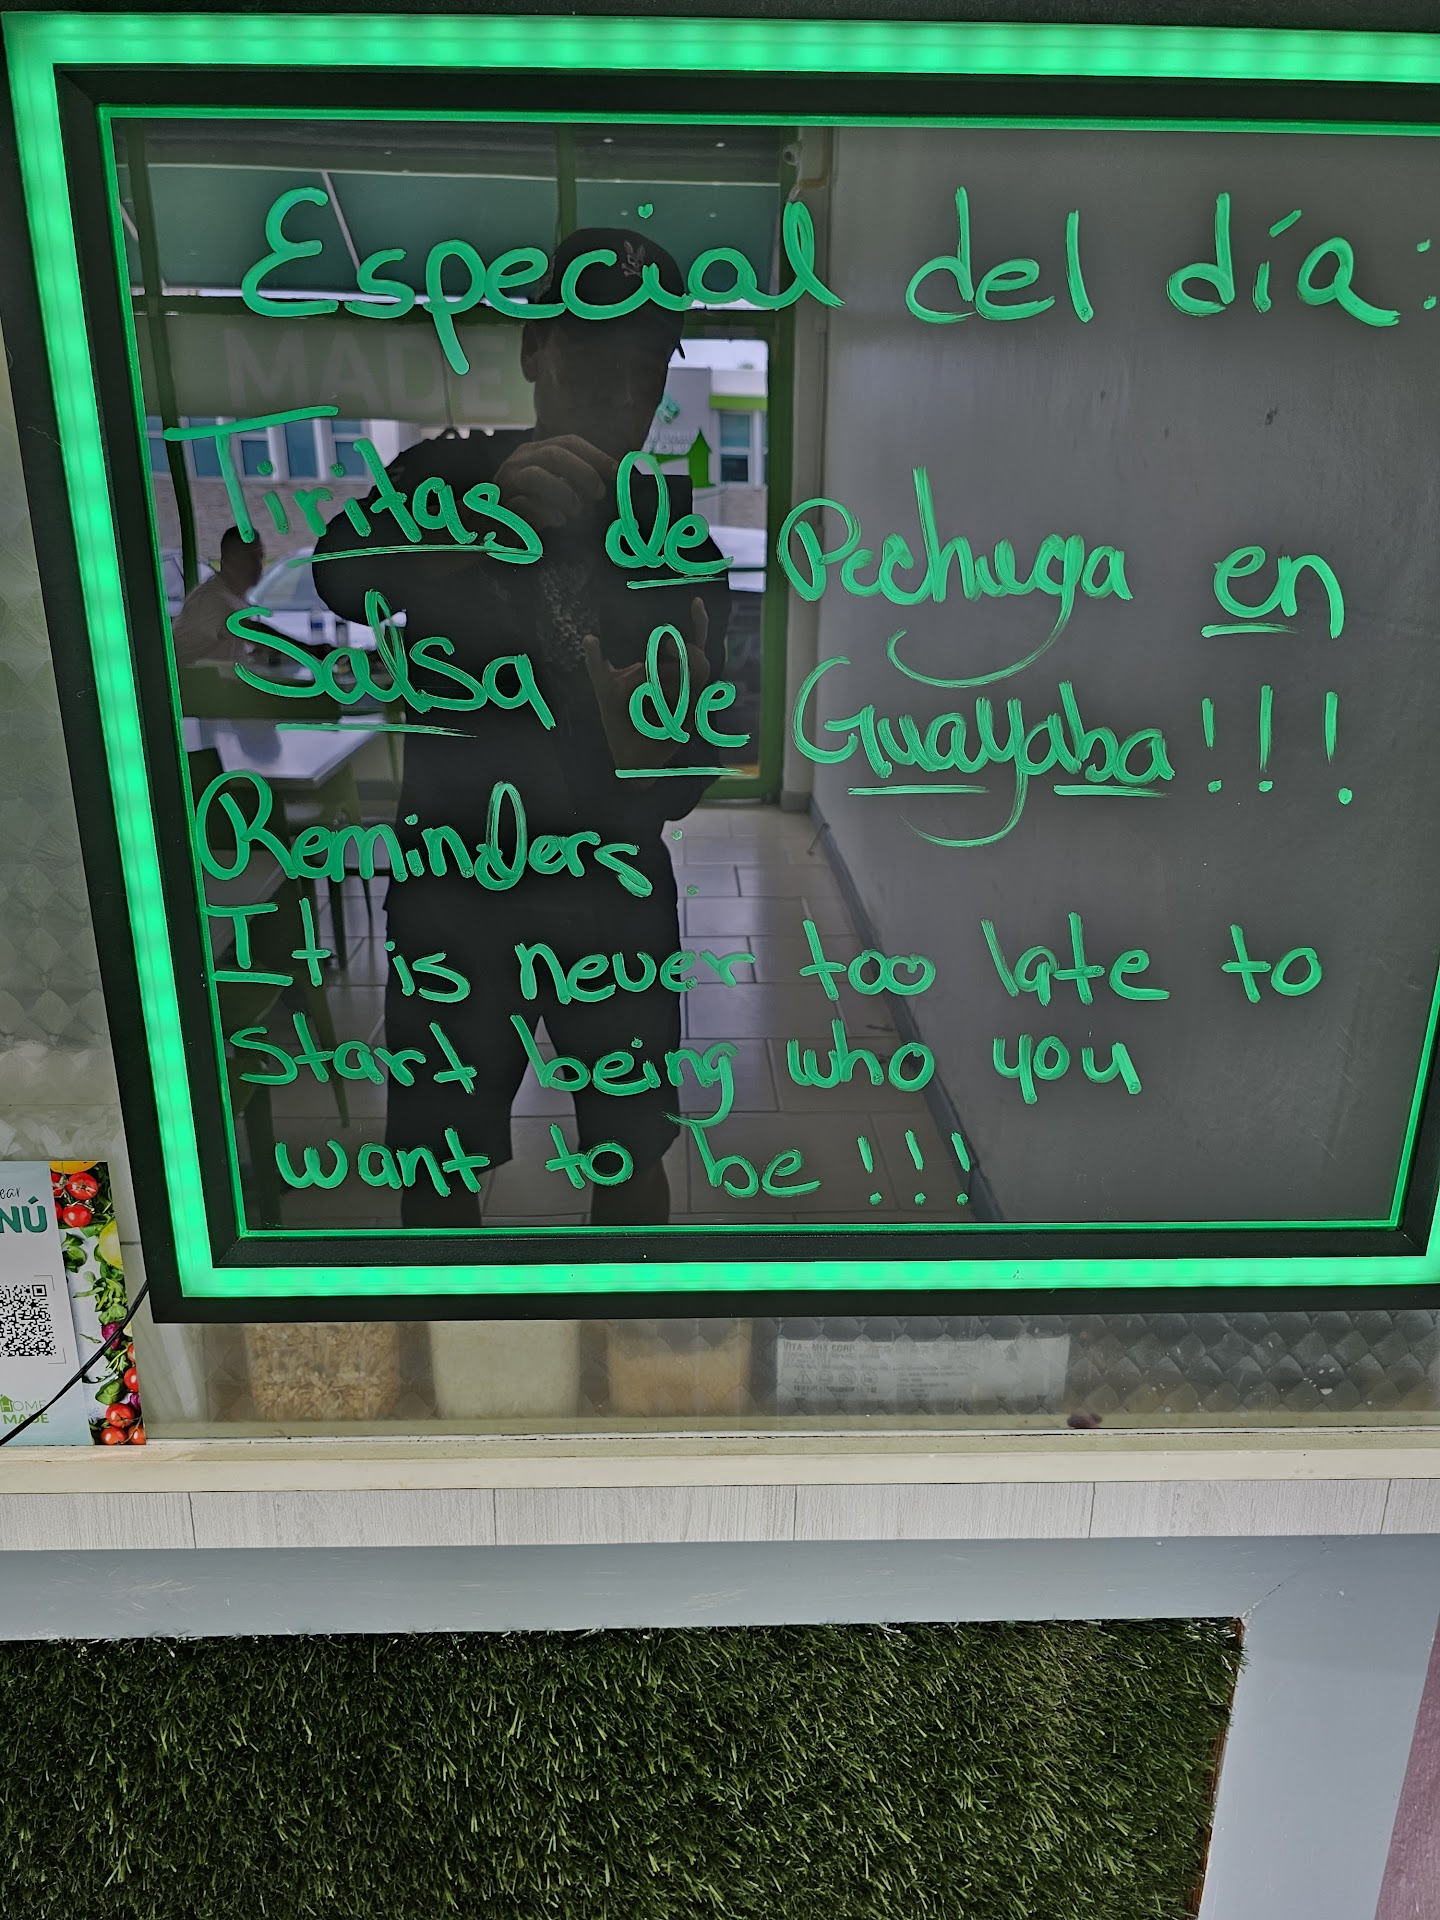 Especial del día:
Tiritas de Pechuga en
Salsa de Guayaba!!!
Reminders:
It is never too late to
start being who you
want to be!!!
MADE
NÚ
HOME
MADE